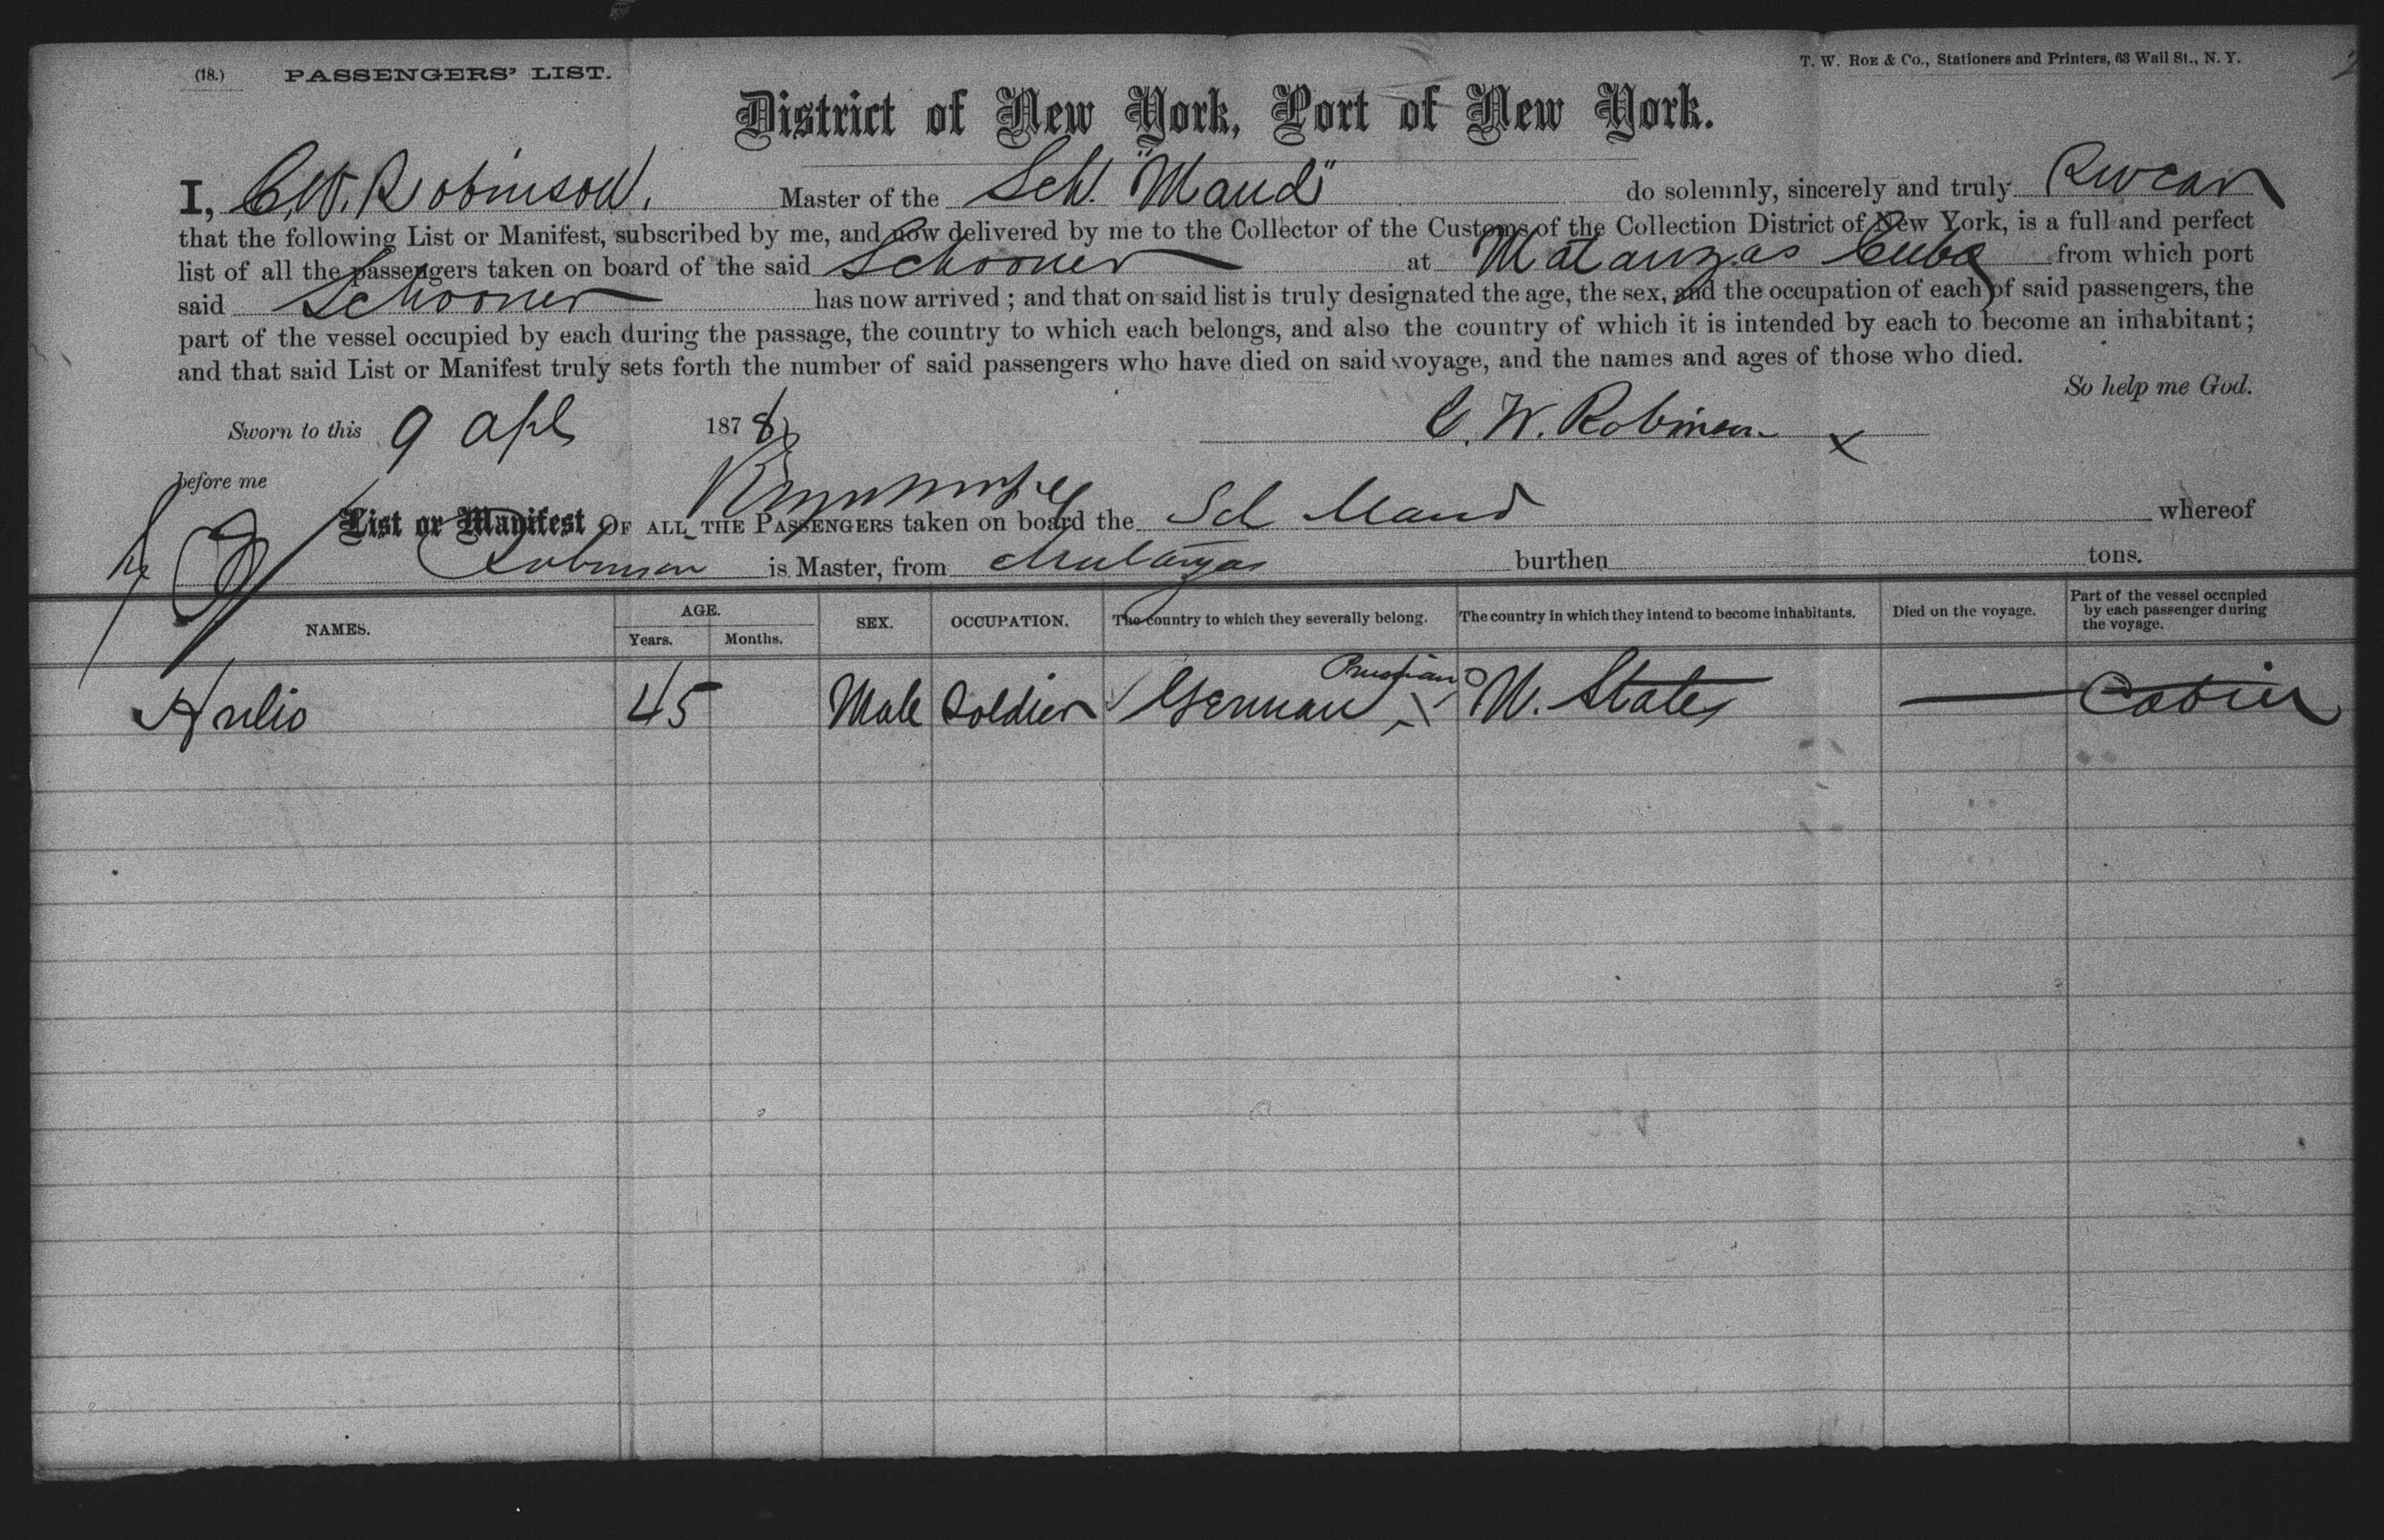 (18.) PASSENGERS' LIST.
T. W. ROE & Co., Stationers and Printers, 63 Wall St., N. Y.
District of New York, Port of New York.
I, C. W. Robinson, Master of the Sch. "Maud" do solemnly, sincerely and truly swear
that the following List or Manifest, subscribed by me, and now delivered by me to the Collector of the Customs of the Collection District of New York, is a full and perfect
list of all the passengers taken on board of the said Schooner at Matanzas Cuba from which port
said Schooner has now arrived; and that on said list is truly designated the age, the sex, and the occupation of each of said passengers, the
part of the vessel occupied by each during the passage, the country to which each belongs, and also the country of which it is intended by each to become an inhabitant;
and that said List or Manifest truly sets forth the number of said passengers who have died on said voyage, and the names and ages of those who died.
So help me God.
Sworn to this 9 Apl 1878 C. W. Robinson x
before me
List or Manifest OF ALL THE PASSENGERS taken on board the Sch Maud whereof
Robinson is Master, from Matanzas burthen tons.
NAMES. AGE. Years. Months. SEX. OCCUPATION. The country to which they severally belong. The country in which they intend to become inhabitants. Died on the voyage. Part of the vessel occupied by each passenger during the voyage.
Prussian
45 Male Soldier German U. States — Cabin